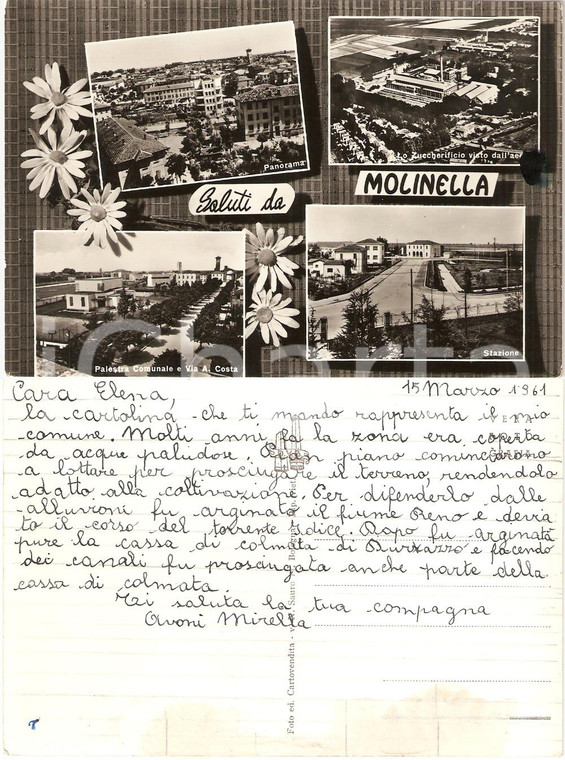 Panorama
Lo Zuccherificio visto dall'ae
Saluti da
MOLINELLA
Palestra Comunale e Via A. Costa
Stazione
Cara Elena,
15 Marzo 1961
la cartolina che ti mando rappresenta il mio
comune. Molti anni fa la zona era coperta
da acque paludose. Pian piano cominciarono
a lottare per prosciugare il terreno, rendendolo
adatto alla coltivazione. Per difenderlo dalle
alluvioni fu arginato il fiume Reno e devia
to il corso del torrente Idice. Dopo fu arginata
pure la cassa di colmata di e facendo
dei canali fu prosciugata anche parte della
cassa di colmata.
Ti saluta la tua compagna
Avoni Mirella
VERA
Foto ed. Cartovendita